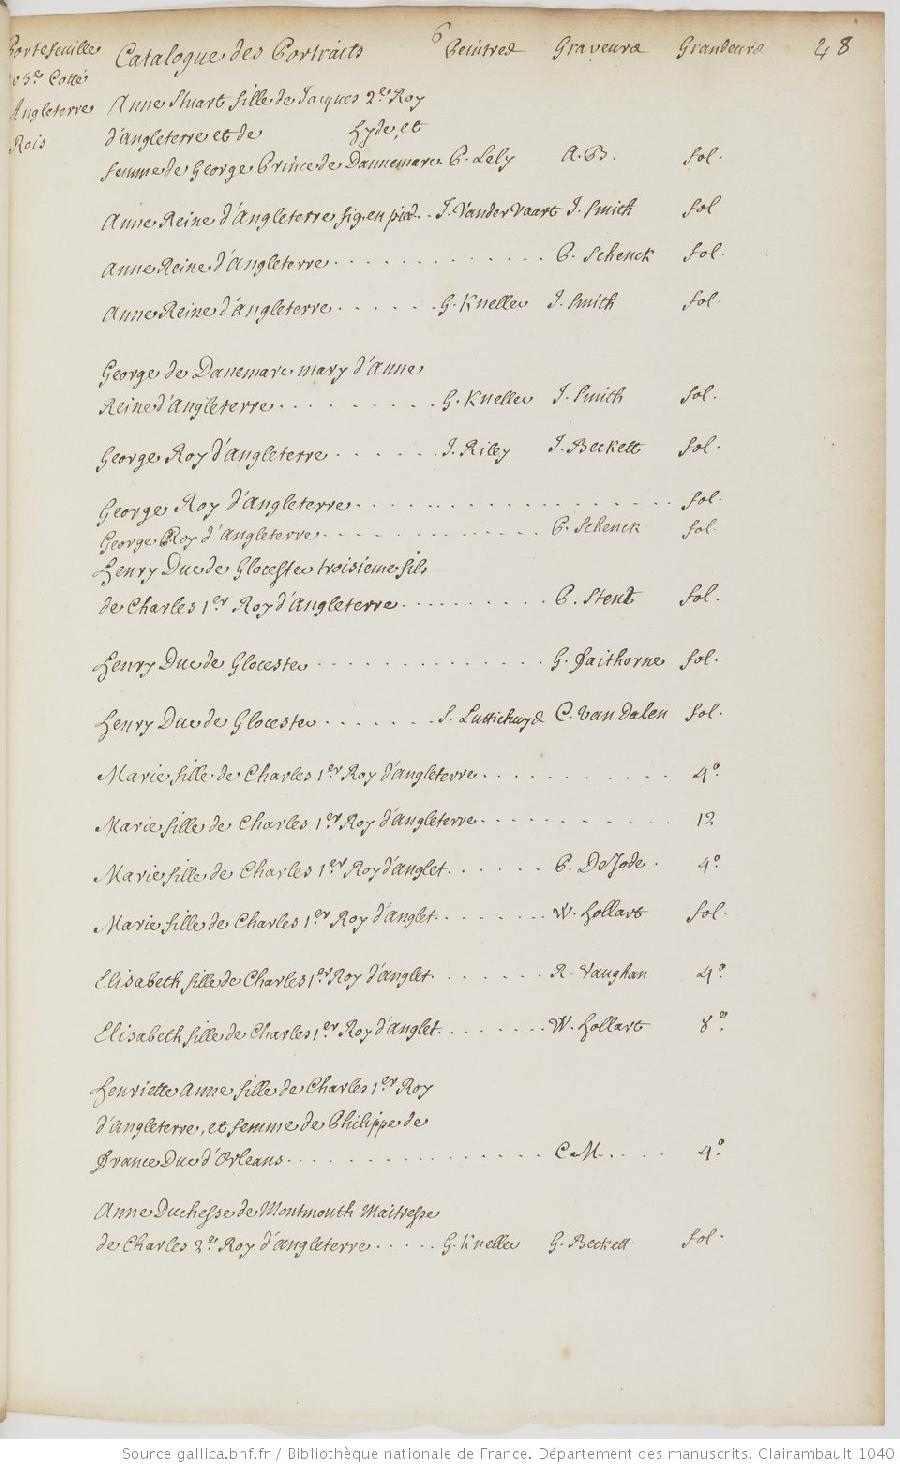 Portefeuille Catalogue des Portraits 6 Peintres Graveurs Grandeurs 48
Cotté
Angleterre
Rois
Anne Stuart fille de Jacques 2e. Roy
d'angleterre et de Hyde, et
femme de George Prince de Dannemarc P. Lely A. B. fol.
Anne Reine d'Angleterre fig. en pied.. J. Vander Vaart J. Smith fol
Anne Reine d'Angleterre . . . . . . . . . . . . . P. Schenck fol.
Anne Reine d'angleterre . . . . . . G. Kneller J. Smith fol
George de Danemarc mary d'Anne
Reine d'Angleterre . . . . . . . . . G. Kneller J. Smith fol.
George Roy d'Angleterre . . . . . . J. Riley J. Beckett fol.
George Roy d'Angleterre . . . . . . . . . . . . . . . . . . . fol.
George Roy d'Angleterre . . . . . . . . . . . . . P. Schenck fol.
Henry Duc de Glocester troisieme fils
de Charles 1er. Roy d'Angleterre . . . . . . . . . P. Stent fol.
Henry Duc de Glocester . . . . . . . . . . . . . G. Faithorne fol.
Henry Duc de Glocester . . . . . . . S. Luttichuyd C. Van Dalen fol.
Marie fille de Charles 1er. Roy d'angleterre . . . . . . . . . . . 4o.
Marie fille de Charles 1er. Roy d'angleterre . . . . . . . . . . . 12
Marie fille de Charles 1er. Roy d'anglet. . . . . . . P. De Jode . 4o.
Marie fille de Charles 1er. Roy d'anglet. . . . . . . W. Hollart fol.
Elisabeth fille de Charles 1er. Roy d'anglet. . . . . . . R. Vaughan 4o.
Elisabeth fille de Charles 1er. Roy d'anglet. . . . . . . W. Hollart 8o.
Henriette Anne fille de Charles 1er Roy
d'angleterre, et femme de Philippe de
France Duc d'Orleans . . . . . . . . . . . . . . . . C. M. . . . . 4o.
Anne Duchesse de Montmouth Maitresse
de Charles 2e. Roy d'angleterre . . . . . G. Kneller G. Beckett fol.
Source gallica.bnf.fr / Bibliothèque nationale de France. Département des manuscrits. Clairambault 1040